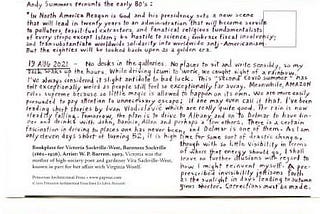 Andy Summers recounts the early 80's:
"In North America Reagan is God and his presidency sets a new scene
that will lead in twenty years to an administration that will become servile
to polluters, fossil fuel extractors, and fanatical religious fundamentalists
of every stripe except Islam; be hostile to science, embrace fiscal insolvency;
and transubstantiate worldwide solidarity into worldwide anti-Americanism.
But the eighties will be looked back upon as a golden era.
19 AUG 2021 - No docks in the galleries. No places to sit and write sensibly, so my
wakes up the hours. While driving to work, we caught sight of a rainbow.
I've always considered it slight to bad luck. This "second Covid summer" has
felt exceptionally weird as people still feel so exceptionally far away. Meanwhile, AMAZON
rules supreme because so little magic is allowed to happen on its own. We are more easily
persuaded to pay attention to unnecessary escapes; if one may even call it that. I've been
reading short stories by Ivan Vladislavić which are really quite good. The rain is now
steadily falling. Tomorrow, the plan is to drive to Albany and on to Delmar to have din-
ner and drinks with John, Danila, Allan and perhaps a few others. There is a certain
fascination in driving to places one has never been, and Delmar is one of them. As I am
only seven days short of turning 52, it is high time for some sort of drastic changes,
though with so little visibility in terms
of where that energy should go, I shall
leave no further illusions with regard to
how I might reinvent myself. A
presidential invisibility perfumes forth
as the sunlight in days leading to autumn
grows shorter. Corrections must be made.
Bookplate for Victoria Sackville-West, Baroness Sackville
(1862–1936). Artist: W. P. Barrett, 1907. Victoria was the
mother of high-society poet and gardener Vita Sackville-West,
known in part for her affair with Virginia Woolf.
Princeton Architectural Press • www.papress.com